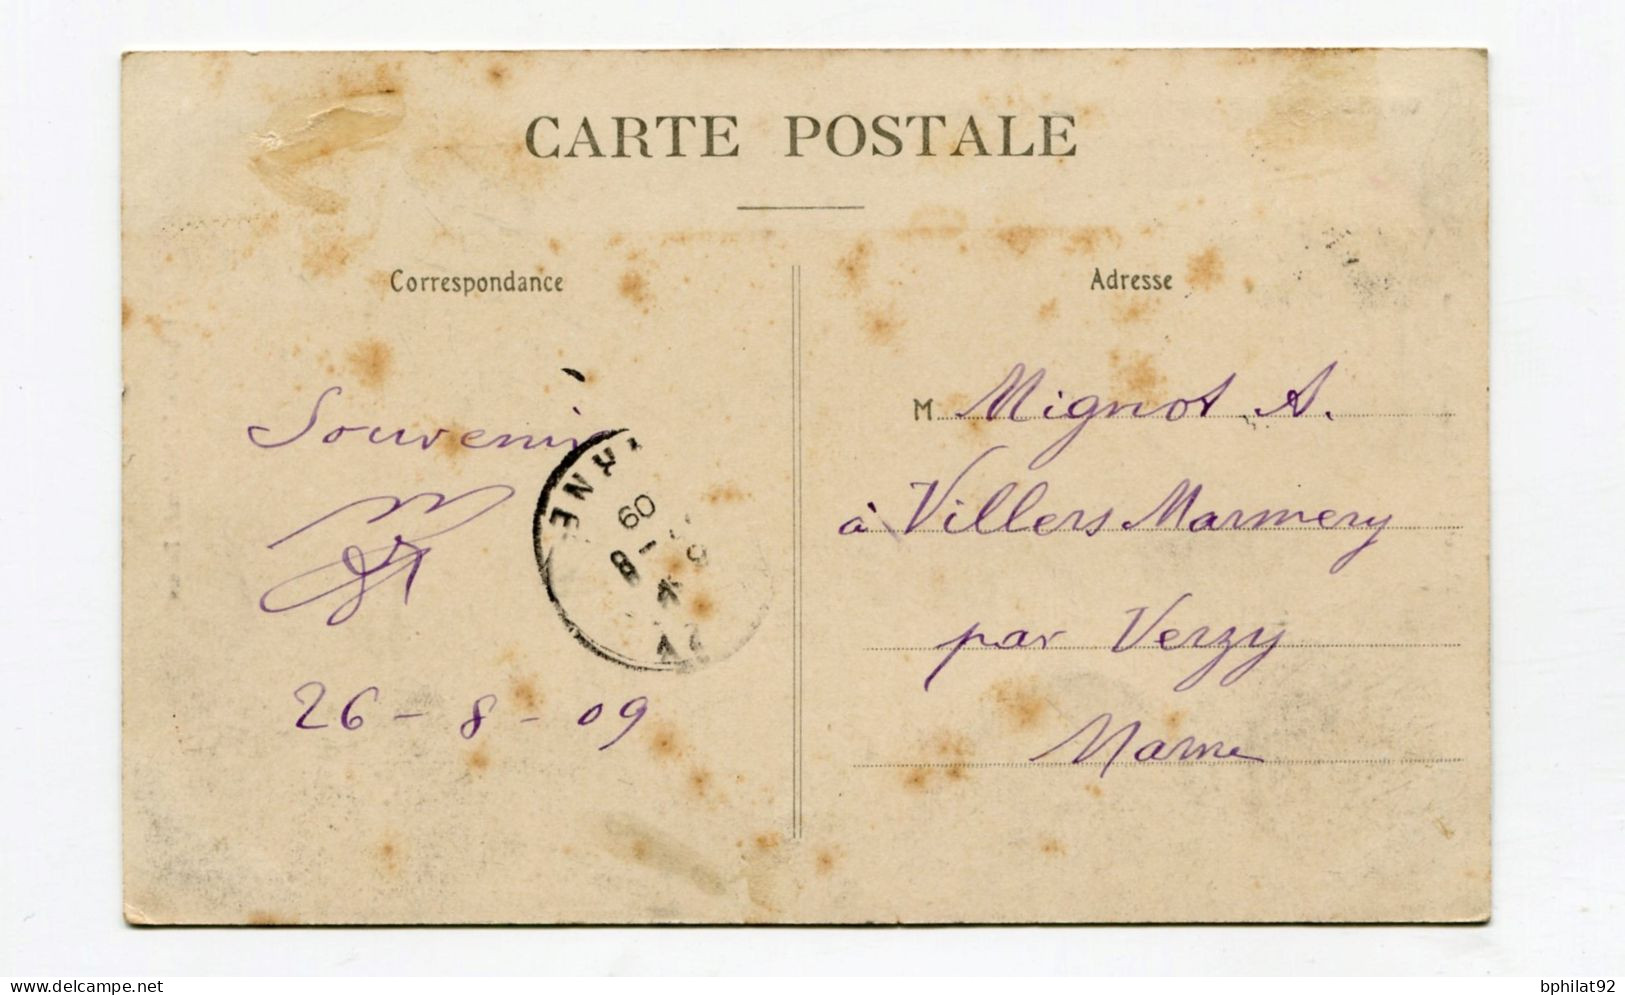 CARTE POSTALE
Correspondance
Souvenir
26 - 8 - 09
Adresse
M Mignot A.
à Villers Marmery
par Verzy
Marne
RNE
09
8
VZ
delcampe.net
bphilat92